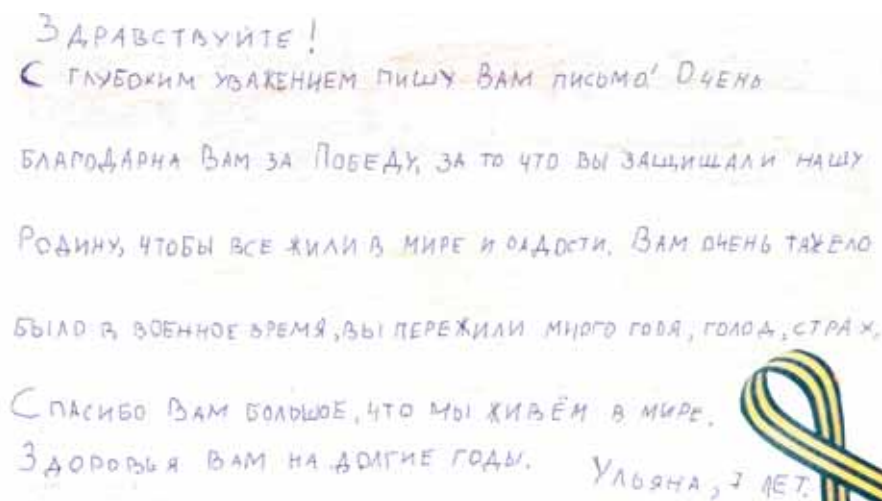 ЗДРАВСТВУЙТЕ!
С ГЛУБОКИМ УВАЖЕНИЕМ ПИШУ ВАМ ПИСЬМО! ОЧЕНЬ
БЛАГОДАРНА ВАМ ЗА ПОБЕДУ, ЗА ТО ЧТО ВЫ ЗАЩИЩАЛИ НАШУ
РОДИНУ, ЧТОБЫ ВСЕ ЖИЛИ В МИРЕ И РАДОСТИ. ВАМ ОЧЕНЬ ТАЖЕЛО
БЫЛО В ВОЕННОЕ ВРЕМЯ, ВЫ ПЕРЕЖИЛИ МНОГО ГОРЯ, ГОЛОД, СТРАХ.
СПАСИБО ВАМ БОЛЬШОЕ, ЧТО МЫ ЖИВЁМ В МИРЕ.
ЗДОРОВЬЯ ВАМ НА ДОЛГИЕ ГОДЫ.
УЛЬЯНА, 7 ЛЕТ.